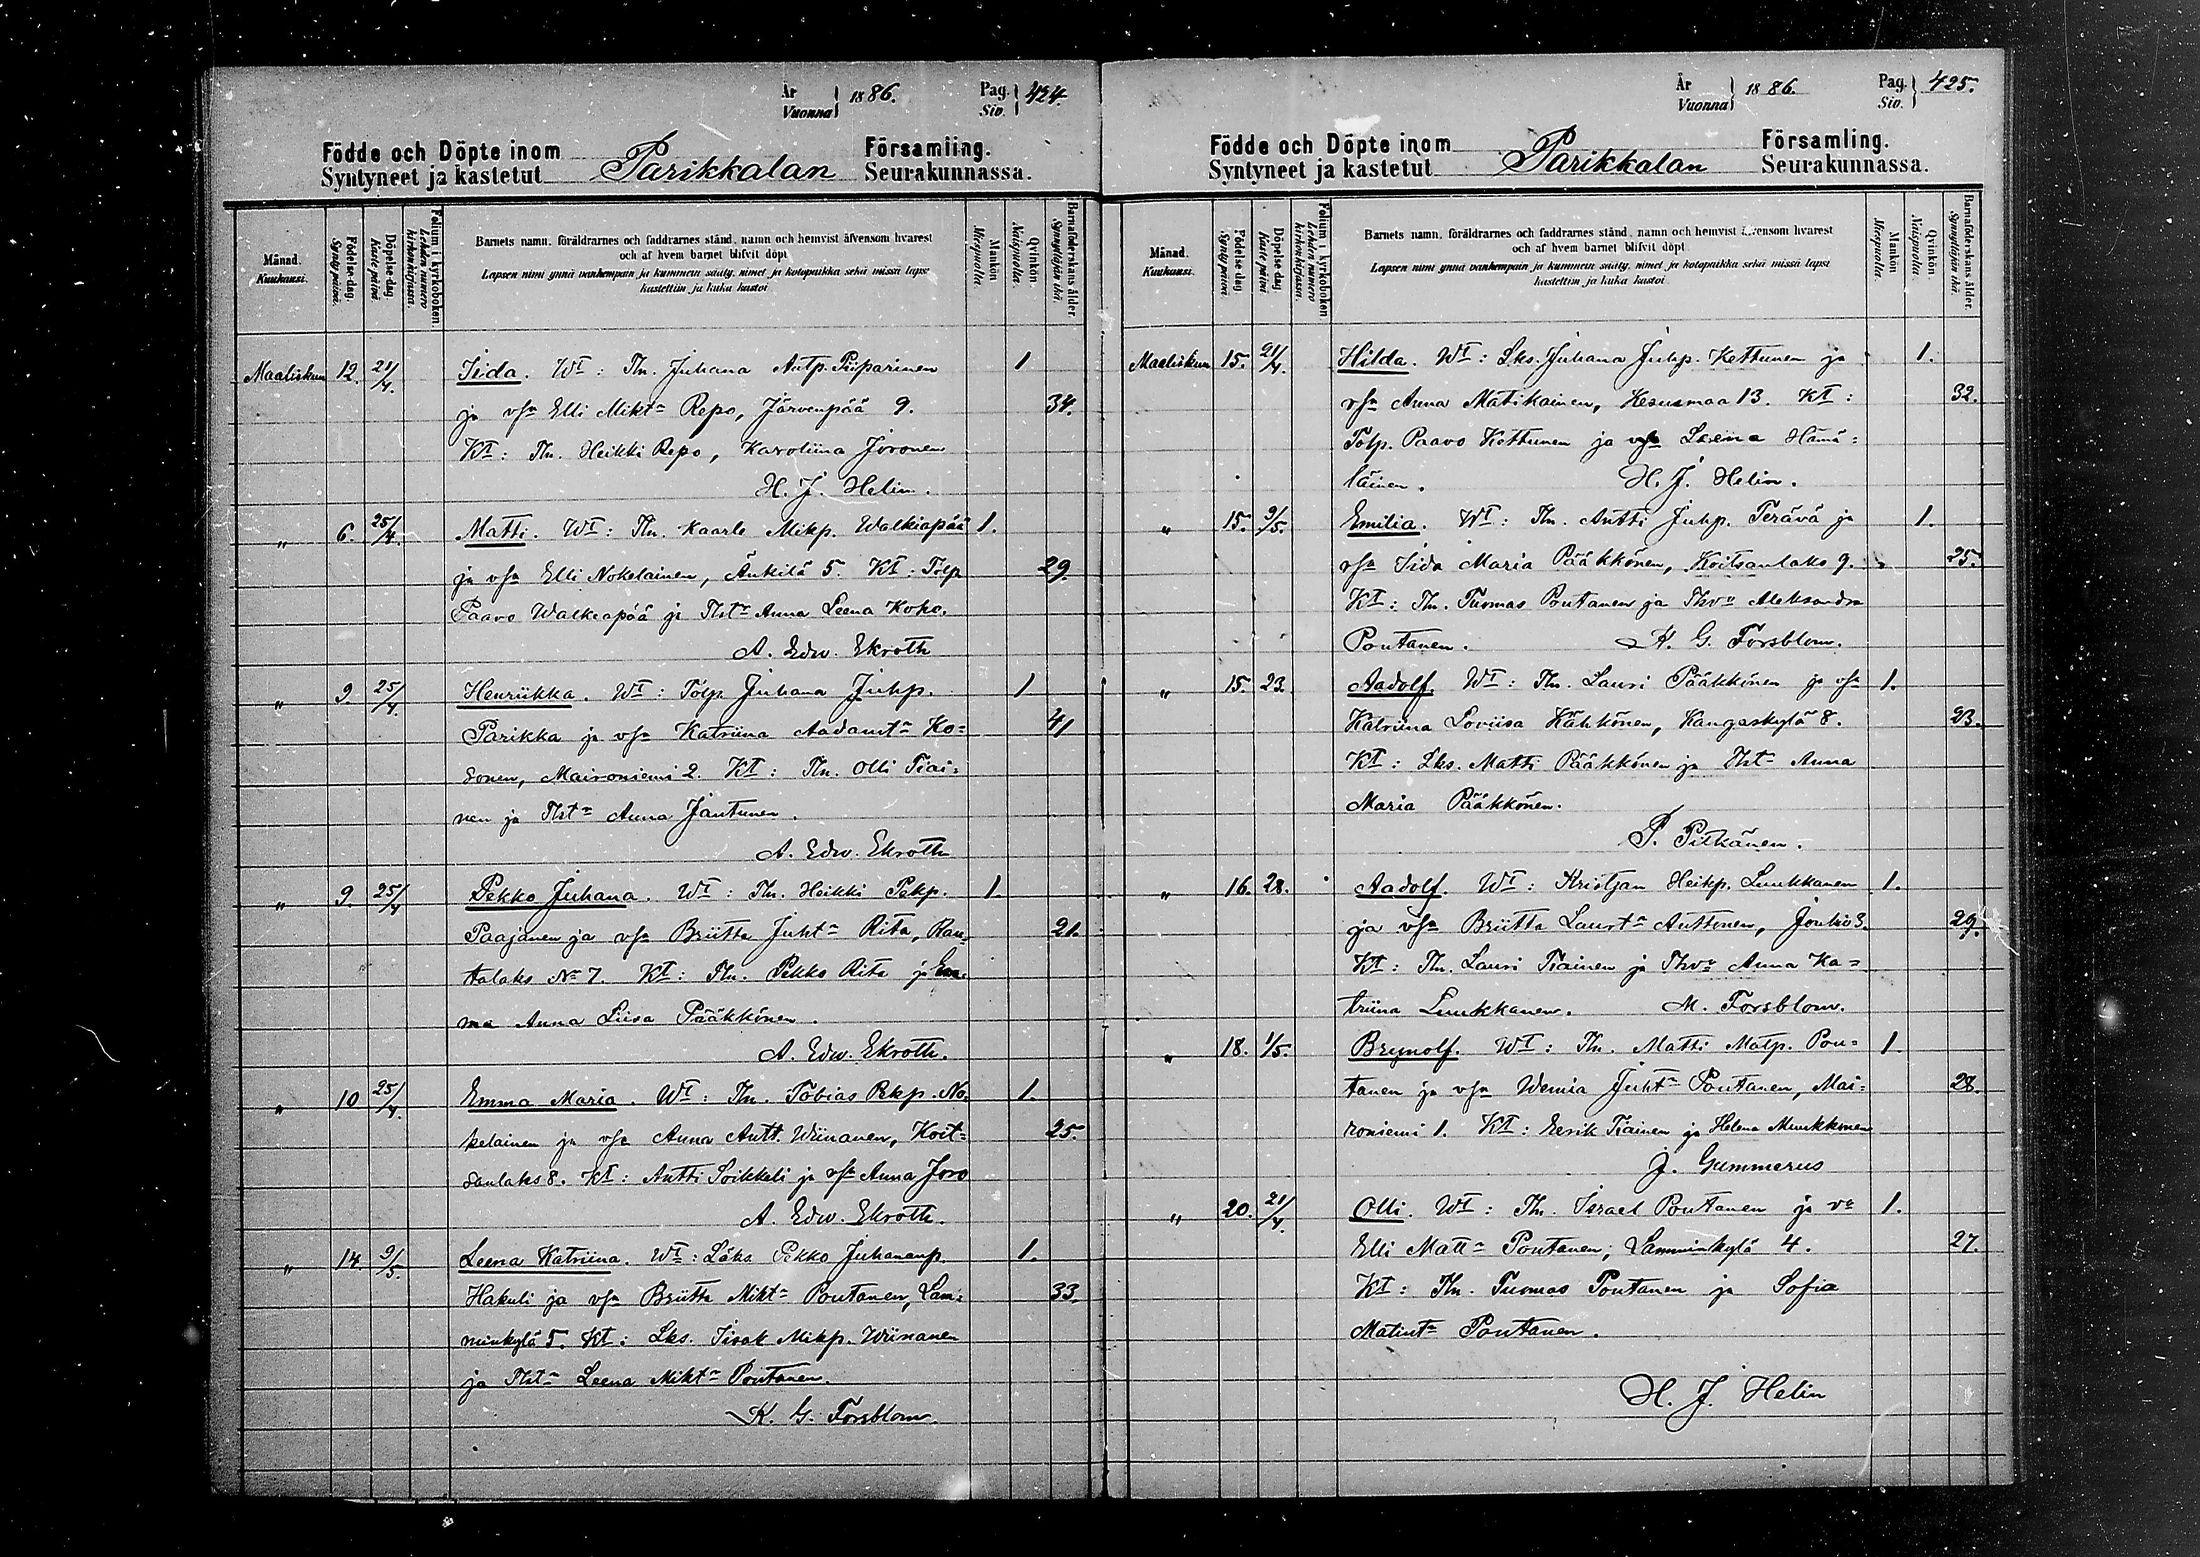 År
Vuonna
1886.
Pag.
Siv.
424.
Födde och Döpte inom
Syntyneet ja kastetut
Parikkalan
Församling.
Seurakunnassa.
Månad.
Kuukausi.
Födelse-dag.
Syntypäivä.
Döpelse-dag
Kastepäivä
Folium i kyrkoboken.
Lehden numero kirkonkirjassa.
Barnets namn, föräldrarnes och faddrarnes stånd, namn och hemvist äfvensom hvarest
och af hvem barnet blifvit döpt
Lapsen nimi ynnä vanhempain ja kummein sääty, nimet ja kotopaikka sekä missä lapsi
kastettiin ja kuka kastoi
Mankön
Miespuolia.
Qvinkön.
Naispuolia.
Barnaföderskans ålder.
Synnyttäjän ikä.
Maaliskuu 12. 21/4. Iida. WI: Tln. Juhana Antp. Piiparinen 1
ja vsa Elli Mikt. Repo, Järvenpää 9. 34.
KI: Tln. Heikki Repo, Karoliina Joronen
H. J. Helin.
" 6. 25/4. Matti. WI: Tln. Kaarle Mikp. Walkiapää 1.
ja vsa Elli Nokelainen, Änkilä 5. KI: Tölp. 29.
Paavo Walkeapää ja Tlst. Anna Leena Koho.
A. Edw. Ekroth
" 9. 25/4. Henriikka. WI: Tölp. Juhana Juhp. 1
Parikka ja vsa Katriina Aadamt. Ko= 41
sonen, Maironiemi 2. KI: Tln. Olli Tiai=
nen ja Tlst. Anna Jantunen.
A. Edw. Ekroth
" 9. 25/4 Pekko Juhana. WI: Tln. Heikki Pekp. 1.
Paajanen ja vsa Briitta Juht. Rita, Rau= 21.
talaks No 7. KI: Tln. Pekko Rita ja Em=
ma Anna Liisa Pääkkönen.
A. Edw. Ekroth.
" 10 25/4. Emma Maria. WI: Tln. Tobias Pekp. No= 1.
kelainen ja vsa Anna Antt. Wiinanen, Koit= 25.
sanlaks 8. KI: Antti Soikkeli ja vsa Anna Joro
A. Edw. Ekroth.
" 14. 9/5. Leena Katriina. WI: Läks. Pekko Juhananp. 1.
Hakuli ja vsa Briitta Mikt. Pontanen, Lam= 33.
minkylä 5. KI: Lks. Iisak Mikp. Wiinanen
ja Tlst. Leena Mikt. Pontanen.
K. G. Forsblom.
År
Vuonna
1886.
Pag.
Siv.
425.
Födde och Döpte inom
Syntyneet ja kastetut
Parikkalan
Församling.
Seurakunnassa.
Månad.
Kuukausi.
Födelse-dag
Syntypäivä.
Döpelse-dag
Kastepäivä
Folium i kyrkoboken
Lehden numero kirkonkirjassa.
Barnets namn, föräldrarnes och faddrarnes stånd, namn och hemvist äfvensom hvarest
och af hvem barnet blifvit döpt
Lapsen nimi ynnä vanhempain ja kummein sääty, nimet ja kotopaikka sekä missä lapsi
kastettiin ja kuka kastoi
Mankön
Miespuolia.
Qvinkön.
Naispuolia.
Barnaföderskans ålder.
Synnyttäjän ikä.
Maaliskuu 15. 21/4. Hilda. WI: Lks. Juhana Juhp. Kettunen ja 1.
vsa Anna Matikainen, Kesusmaa 13. KI: 32.
Tölp. Paavo Kettunen ja vsa Leena Hämä=
läinen. H. J. Helin.
" 15. 9/5. Emilia. WI: Tln. Antti Juhp. Terävä ja 1.
vsa Iida Maria Pääkkönen, Koitsanlaks 9. 25.
KI: Tln. Tuomas Pontanen ja Tlsv. Aleksandra
Pontanen. K. G. Forsblom.
" 15. 23. Aadolf. WI: Tln. Lauri Pääkkönen ja vsa 1.
Katriina Loviisa Kähkönen, Kangaskylä 8. 23.
KI: Lks. Matti Pääkkönen ja Tlst. Anna
Maria Pääkkönen.
P. Pitkänen.
" 16. 28. Aadolf. WI: Kristjan Heikp. Luukkanen 1.
ja vsa Briitta Laurt. Anttonen, Joukio 3. 29.
KI: Tln. Lauri Tiainen ja Tlsv. Anna Ka=
triina Luukkanen. M. Forsblom.
" 18. 1/5. Brynolf. WI: Tln. Matti Matp. Pon= 1.
tanen ja vsa Wemia Juht. Pontanen, Mai= 28.
roniemi 1. KI: Eerik Tiainen ja Helena Muukkonen
J. Gummerus
" 20. 21/4. Olli. WI: Tln. Israel Pontanen ja va 1.
Elli Matt. Pontanen, Lamminkylä 4. 27.
KI: Tln. Tuomas Pontanen ja Sofia
Matint. Pontanen.
H. J. Helin